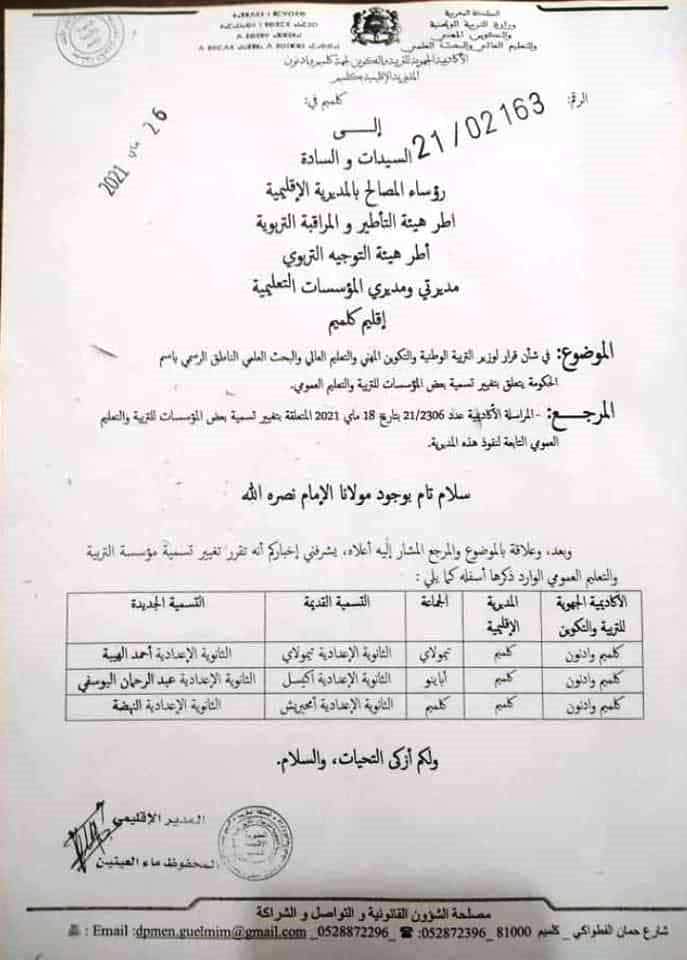 المملكة المغربية
وزارة التربية الوطنية
والتكوين المهني
والتعليم العالي والبحث العلمي
الأكاديمية الجهوية للتربية والتكوين لجهة كلميم وادنون
المديرية الإقليمية بكلميم
الرقم: 21/02163
كلميم في: 26 ماي 2021
إلــى
السيدات و السادة
رؤساء المصالح بالمديرية الإقليمية
اطر هيئة التأطير و المراقبة التربوية
أطر هيئة التوجيه التربوي
مديرتي ومديري المؤسسات التعليمية
إقليم كلميم
الموضوع: في شأن قرار لوزير التربية الوطنية والتكوين المهني والتعليم العالي والبحث العلمي الناطق الرسمي باسم
الحكومة يتعلق بتغيير تسمية بعض المؤسسات للتربية والتعليم العمومي.
المرجـــع: - المراسلة الأكاديمية عدد 21/2306 بتاريخ 18 ماي 2021 المتعلقة بتغيير تسمية بعض المؤسسات للتربية والتعليم
العمومي التابعة لنفوذ هذه المديرية.
سلام تام بوجود مولانا الإمام نصره الله
وبعد، وعلاقة بالموضوع والمرجع المشار إليه أعلاه، يشرفني إخباركم أنه تقرر تغيير تسمية مؤسسة التربية
والتعليم العمومي الوارد ذكرها أسفله كما يلي :
الأكاديمية الجهوية للتربية والتكوين المديرية الإقليمية الجماعة التسمية القديمة التسمية الجديدة
كلميم وادنون كلميم تيمولاي الثانوية الإعدادية تيمولاي الثانوية الإعدادية أحمد الهيبة
كلميم وادنون كلميم أباينو الثانوية الإعدادية أكيسل الثانوية الإعدادية عبد الرحمان اليوسفي
كلميم وادنون كلميم كلميم الثانوية الإعدادية أمحيريش الثانوية الإعدادية النهضة
ولكم أزكى التحيات، والسلام.
المدير الإقليمي
المحفوظ ماء العينين
مصلحة الشؤون القانونية و التواصل و الشراكة
شارع حمان الفطواكي _ كلميم 81000 _0528772396: ☎ _0528872296_ Email :dpmen.guelmim@gmail.com :